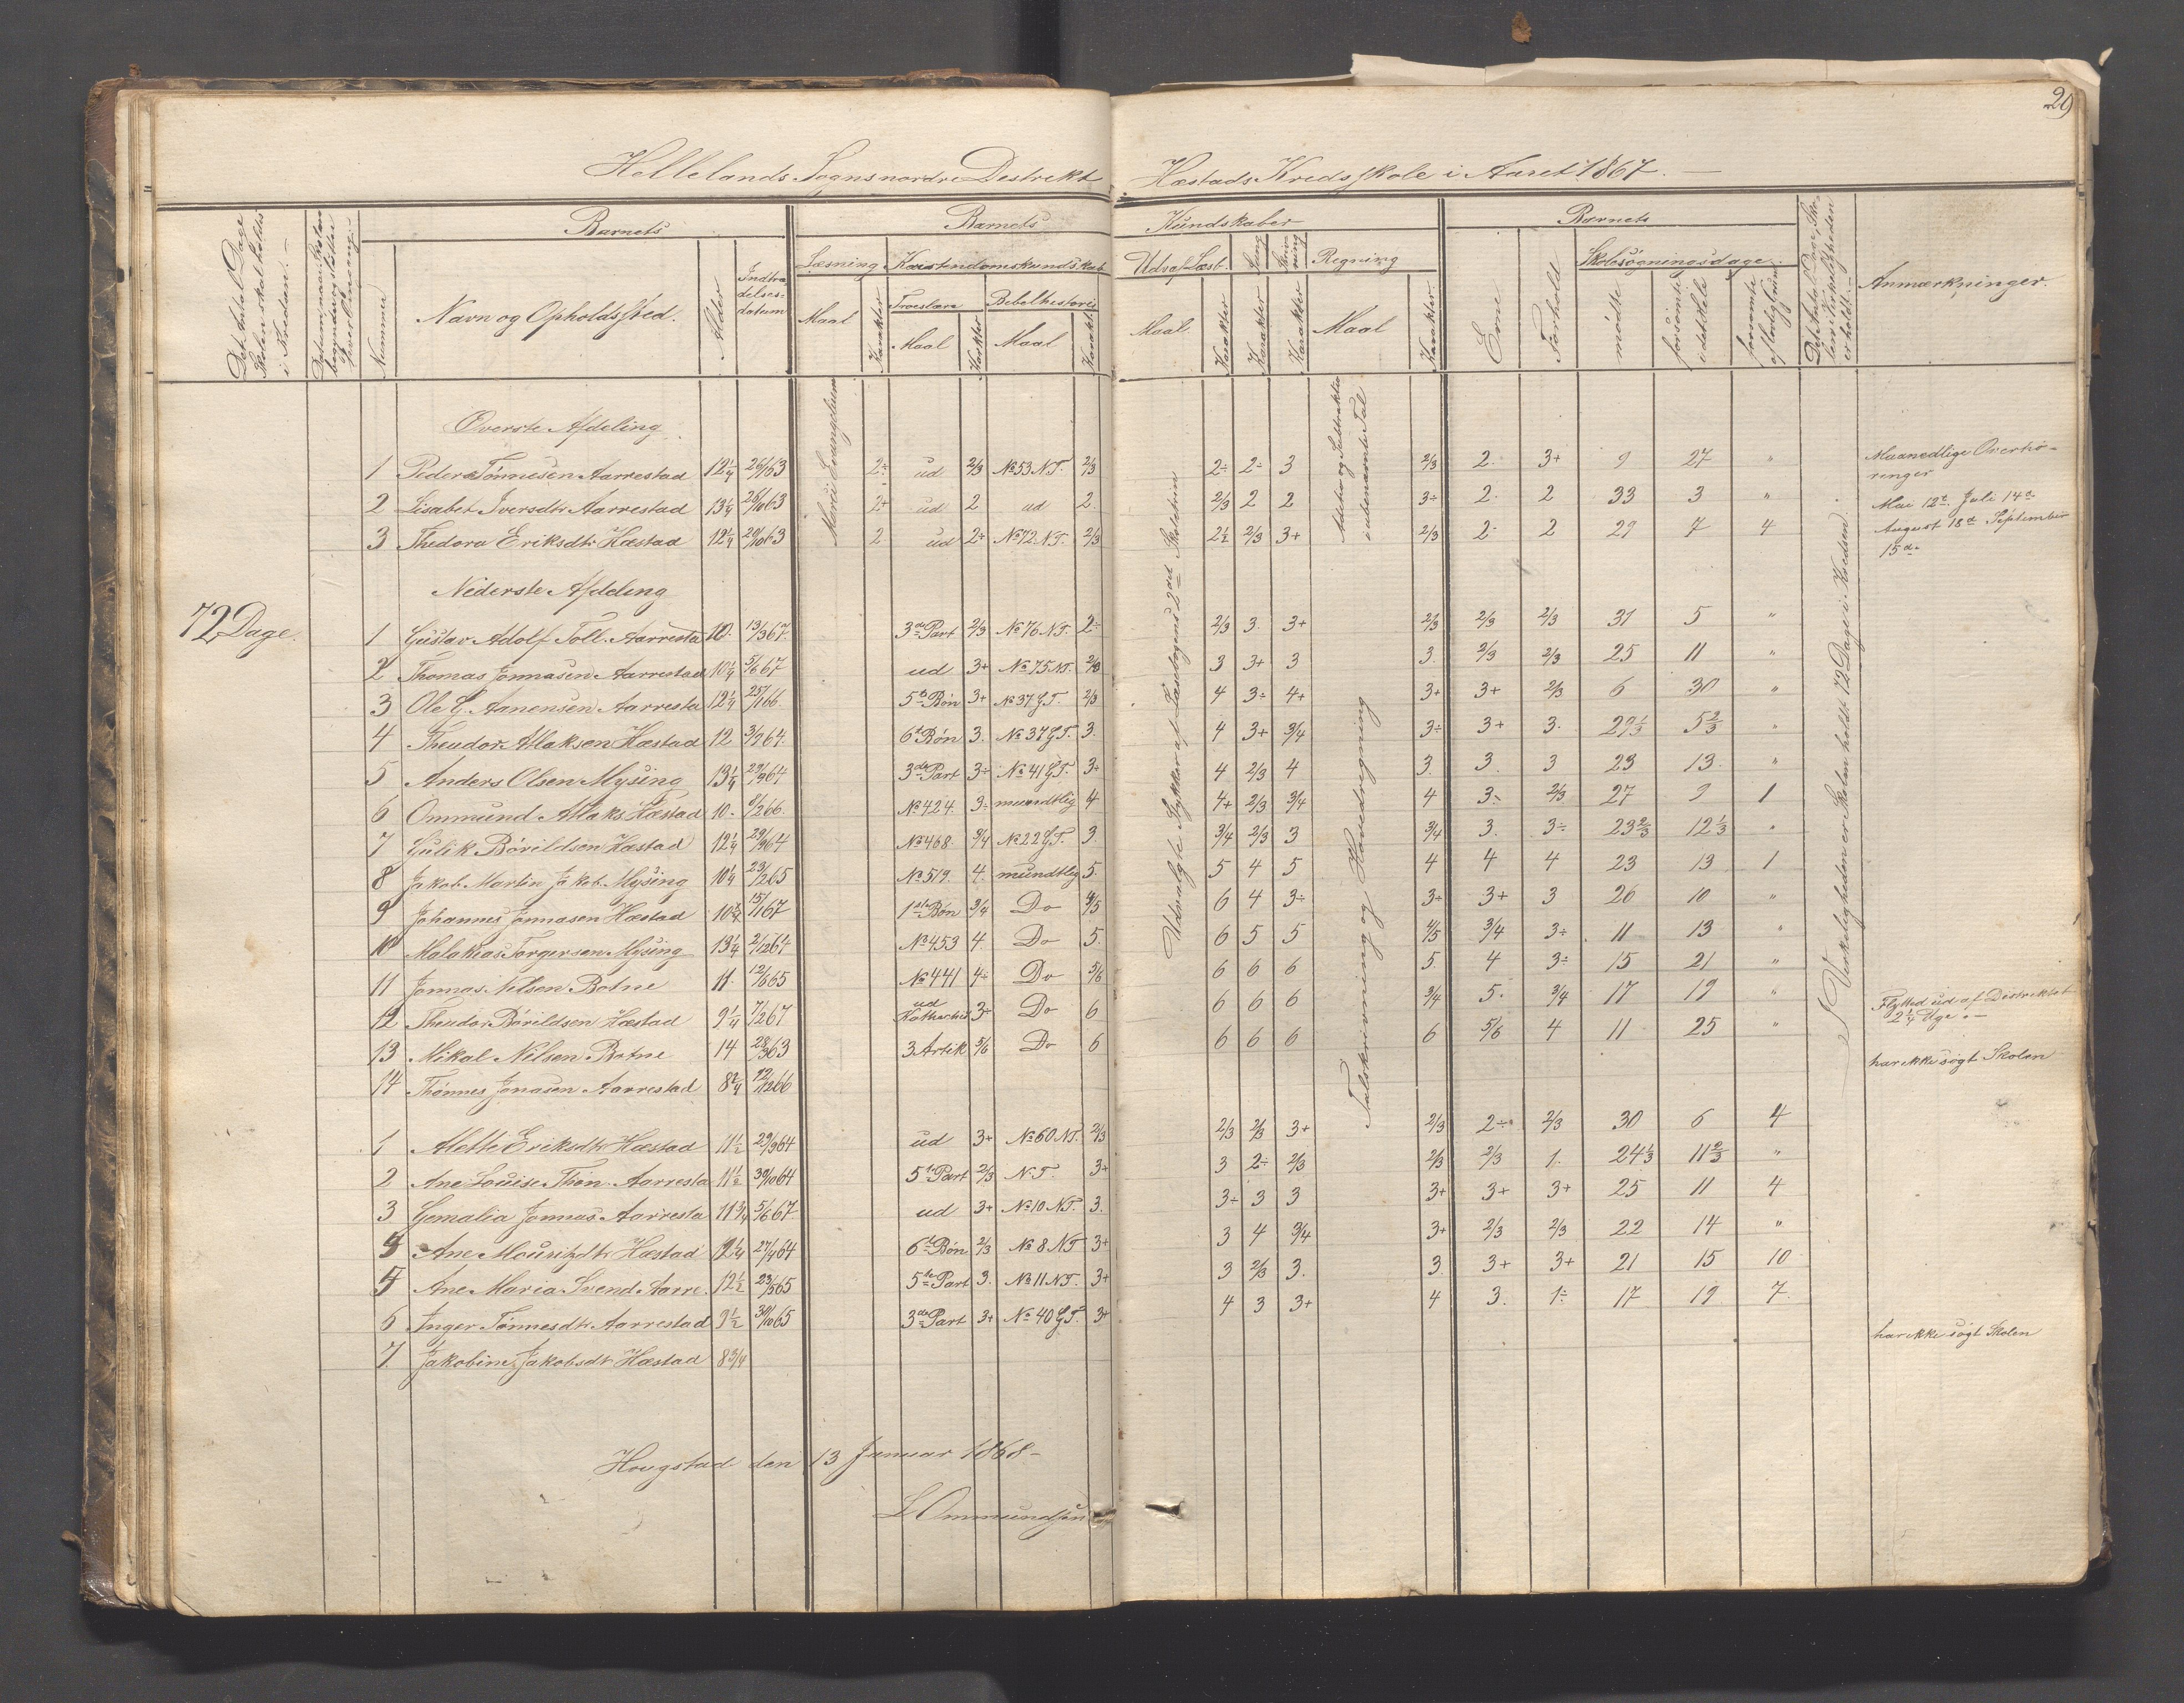 20
Hellelands Sogns nordre Destrekt Hæstads Kredsskole i Aaret 1867.
Det Antal Dage Skolen skal holdes i Kredsen.
Nummer
Barnets
Navn og Opholdssted.
Alder
Indtrædelses-datum
Barnets Kundskaber
Læsning Kristendomskundskab
Maal Karakter
Troeslære Bibelhistorie
Maal Karakter Maal Karakter
Udvalg Læst. Sang Skrivning Regning
Maal Karakter Karakter Karakter Maal Karakter
Barnets
Evne Forhold
Skolesøgningsdage
mødte forsømte i det Hele forsømte af lovlig Grund
Det Antal Dage Skolen i Virkeligheden er holdt.
Anmærkninger.
Øverste Afdeling
Marci Evangelium
Udvalgte Stykker af Læsebogens 2det Skoletrin
Addition og Subtraktion i ubenævnte Tal
1 Peder Tønnesen Aarrestad 12 1/4 26/163 2÷ ud 2/3 No 53 N.T. 2/3 2÷ 2÷ 3 2/3 2. 3+ 9 27 "
Maanedlige Overhøringer
2 Lisabet Iversdtr Aarrestad 13 1/4 26/1063 2+ ud 2 ud 2. 2/3 2 2 3÷ 2. 2 33 3 "
Mai 12te Juli 14de
3 Thedora Eriksdtr Hæstad 12 1/4 20/1063 2 ud 2+ No 72 N.T. 2/3 2÷ 2/3 3+ 2/3 2÷ 2 29 7 4
August 18de September 15de
Nederste Afdeling
72 Dage.
Talskrivning og Hovedregning
I Virkeligheden er Skolen holdt 72 Dage i Kredsen.
1 Gustav Adolf Toll. Aarresta 10. 13/367. 3de Part 2/3 No 76 N.T. 2÷ 2/3 3. 3+ 2/3 2/3 2/3 31 5 "
2 Thomas Jonnasen Aarrestad 10 1/4 5/667 ud 3+ No 75 N.T. 2/3 3 3+ 3 3. 2/3 2/3 25 11 "
3 Ole G. Aanensen Aarresta 12 1/4 25/166 5te Bøn 3+ No 37 G.T. 2/3 4 3÷ 4+ 3+ 3+ 2/3 6 30 "
4 Theodor Atlaksen Hæstad 12 3/964. 6te Bøn 3. No 37 G.T. 3. 4 3+ 3/4 3÷ 3+ 3. 29 1/3 5 2/3 "
5 Anders Olsen Mysing 13 1/4 29/964 3de Part 3÷ No 41 G.T. 3+ 4 2/3 4 3. 3. 3 23 13 "
6 Ommund Atlaks Hæstad 10. 8/266. No 424. 3÷ mundtlig 4 4+ 2/3 3/4 4 3÷ 2/3 27 9 1
7 Gulik Børildsen Hæstad 12 1/4 29/964 No 468. 3/4 No 22 G.T. 3. 3/4 2/3 3 3/4 3. 3÷ 23 2/3 12 1/3 "
8 Jakob Martin Jakob. Mysing 10 1/4 23/265 No 519. 4. mundtlig 5. 5 4 5 4 4 4 23 13 1
9 Johannes Jonnasen Hæstad 10 3/4 15/167 1ste Bøn 3/4 Do 4/5 6 4 3÷ 3÷ 3+ 3 26 10 "
10 Malakias Torgersen Mysing 13 1/4 2/1264 No 453 4. Do 5. 6 5 5 4/5 3/4 3÷ 11 13 "
11 Jonnas Nilsen Botne 11. 12/665 No 441 4÷ Do 5/6 6 6 6 5 4 3÷ 15 21 "
12 Theodor Børildsen Hæstad 9 1/4 7/267 ud 3÷ Do 6 6 6 6 3/4 5. 3/4 17 19 "
Flytted ud af Destriktet 2 1/4 Uge.
13 Mikal Nilsen Botne 14 28/363 3 Artik 5/6 Do 6 6 6 6 6 5/6 4 11 25 "
14 Thønnes Jonasen Aarrestad 8 2/4 12/1266 har ikke søgt Skolen
1 Alette Eriksdtr Hæstad 11 1/2 29/964 ud 3+ No 60 N.T. 2/3 2/3 2/3 3+ 2/3 2÷ 2/3 30 6 4
2 Ane Louise Thøn. Aarresta 11 1/2 30/1064 5te Part 2/3 N.T. 3+ 3 2÷ 2/3 2/3 2/3 1. 24 1/3 11 2/3 "
3 Gemalia Jonnas. Aarresta 11 3/4 5/667. ud 3+ No 10 N.T. 3. 3÷ 3 3 3+ 3+ 3+ 25 11 4
4 Ane Mouritzdtr Hæstad 12 1/4 27/464 6te Bøn 2/3 No 8 N.T 3+ 3 4 3/4 3+ 2/3 2/3 22 14 "
5 Ane Maria Svend. Aarre. 12 1/2 23/565 5te Part 3. No 11 N.T. 3+ 3 2/3 3. 3 3+ 3+ 21 15 10
6 Inger Tønnesdtr Aarrestad 9 1/2 30/1065 3de Part 3+ No 40 G.T. 3+ 4 3 3+ 4 3. 1÷ 17 19 7.
7 Jakobine Jakobsdtr Hæstad 8 3/4 har ikke søgt Skolen
Hougstad den 13 Januar 1868
L Ommundsen